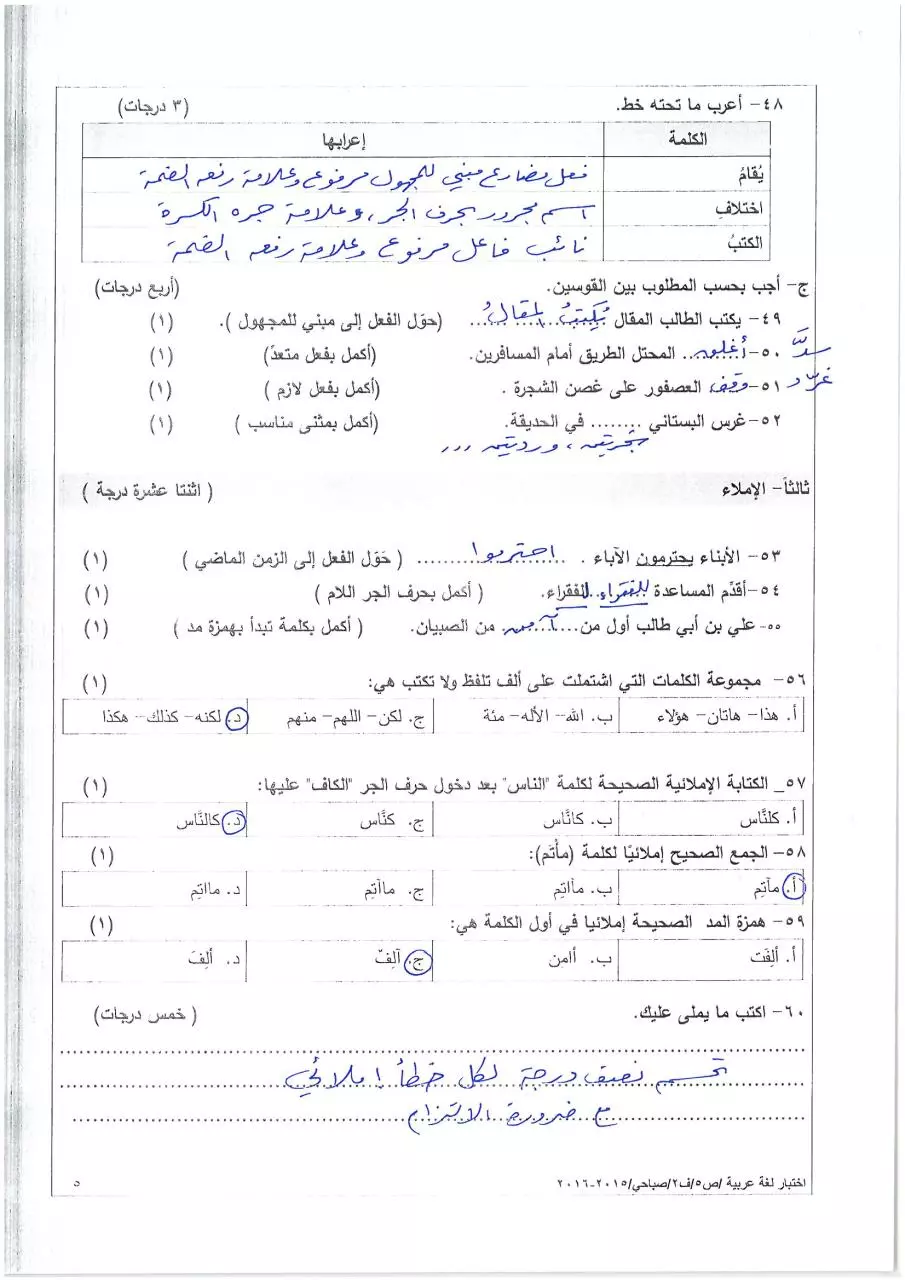 ٤٨- أعرب ما تحته خط. (٣ درجات)
الكلمة إعرابها
يُقامُ فعل مضارع مبني للمجهول مرفوع وعلامة رفعه الضمة
اختلافِ اسم مجرور بحرف الجر، وعلامة جره الكسرة
الكتبُ نائب فاعل مرفوع وعلامة رفعه الضمة
ج- أجب بحسب المطلوب بين القوسين. (أربع درجات)
٤٩- يكتب الطالب المقال يُكتبُ المقالُ (حوّل الفعل إلى مبني للمجهول ). (١)
سدَّ
٥٠- أغلق.. المحتل الطريق أمام المسافرين. (أكمل بفعل متعدّ) (١)
غرّد
٥١- وقف العصفور على غصن الشجرة . (أكمل بفعل لازم ) (١)
٥٢- غرس البستاني ........ في الحديقة. (أكمل بمثنى مناسب ) (١)
شجرتين ، وردتين ,,,
ثالثاً- الإملاء ( اثنتا عشرة درجة )
٥٣- الأبناء يحترمون الآباء . احترموا ( حَوّل الفعل إلى الزمن الماضي ) (١)
٥٤- أقدّم المساعدة للفقراء..للفقراء. ( أكمل بحرف الجر اللام ) (١)
٥٥- علي بن أبي طالب أول من....آمن.. من الصبيان. ( أكمل بكلمة تبدأ بهمزة مد ) (١)
٥٦- مجموعة الكلمات التي اشتملت على ألف تلفظ ولا تكتب هي: (١)
أ. هذا- هاتان- هؤلاء ب. الله- الأله- مئة ج. لكن- اللهم- منهم د. لكنه- كذلك- هكذا
٥٧_ الكتابة الإملائية الصحيحة لكلمة "الناس" بعد دخول حرف الجر "الكاف" عليها: (١)
أ. كلنَّاس ب. كانَّاس ج. كنَّاس د. كالنَّاس
٥٨- الجمع الصحيح إملائيًا لكلمة (مأتَم): (١)
أ. مآتِم ب. مأاتِم ج. ماآتِم د. مااتِم
٥٩- همزة المد الصحيحة إملائيا في أول الكلمة هي: (١)
أ. ألِفَت ب. أامن ج. آلِفّ د. ألِفَ
٦٠- اكتب ما يملى عليك. ( خمس درجات)
تحسم نصف درجة لكل خطأ إملائي
مع ضرورة الالتزام
اختبار لغة عربية /ص٥/ف٢/صباحي/٢٠١٥-٢٠١٦ ٥